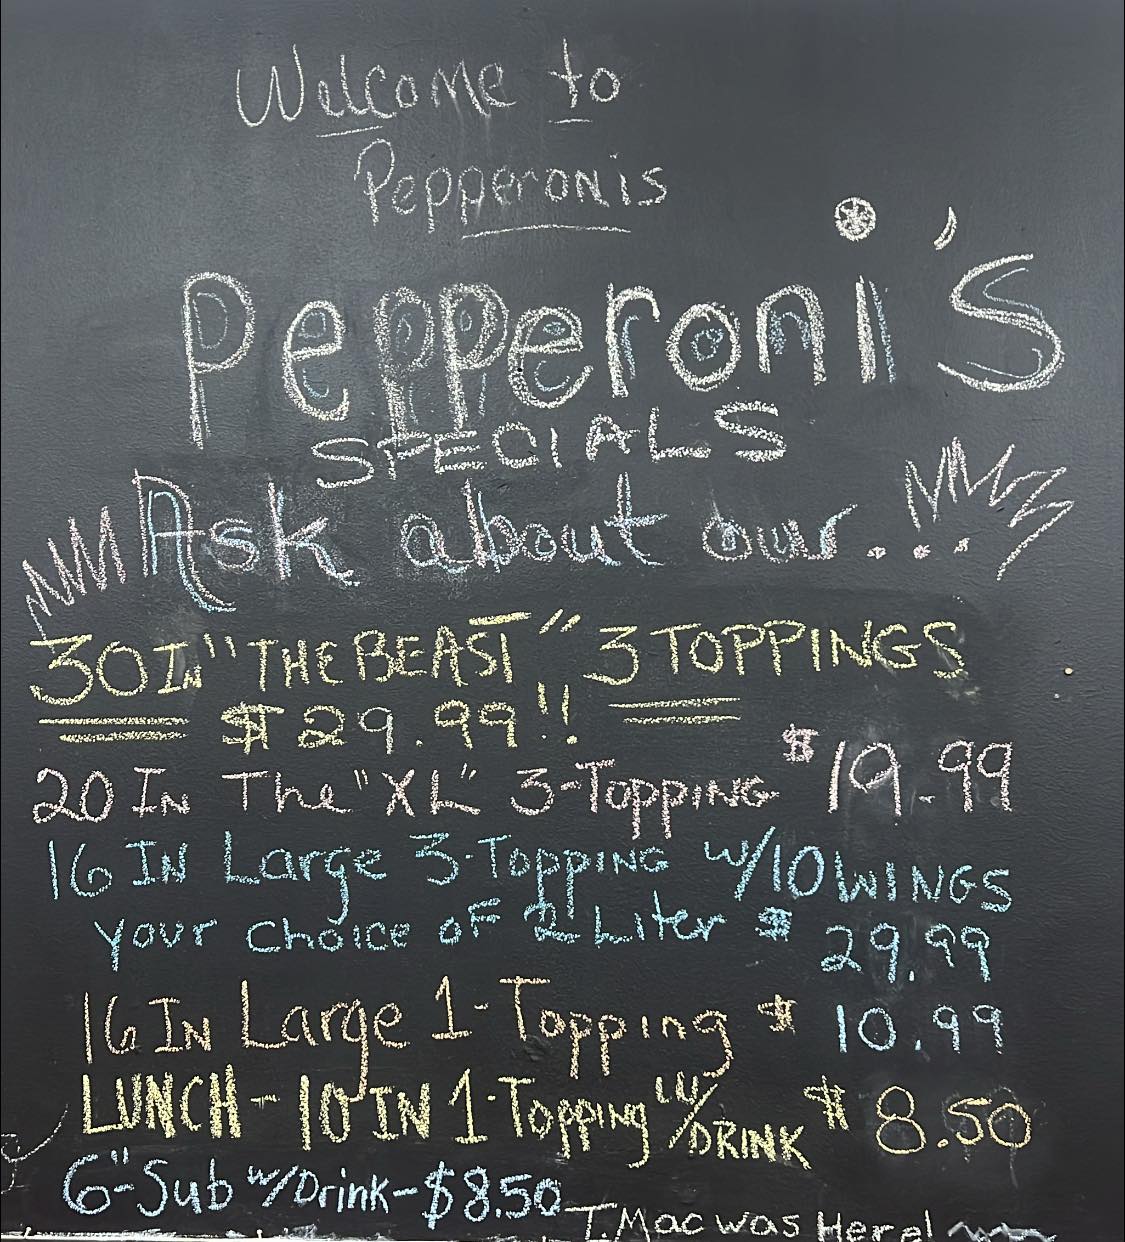 Welcome to
Pepperonis
Pepperoni's
SPECIALS
Ask about our....
30 IN "THE BEAST" 3 TOPPINGS
$29.99!!
20 IN The "XL" 3-TOPPING $19.99
16 IN Large 3-TOPPING W/10 WINGS
your choice of 2 Liter $29.99
16 IN Large 1-Topping $10.99
LUNCH - 10 IN 1-Topping W/DRINK $8.50
6"-Sub w/Drink-$8.50
T.Mac was Here!